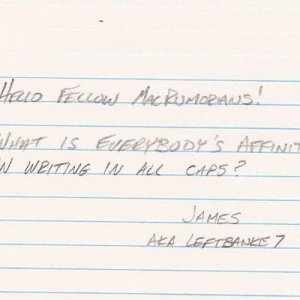 HELLO FELLOW MACRUMORIANS!
WHAT IS EVERYBODY'S AFFINIT
N WRITING IN ALL CAPS?
JAMES
AKA LEFTBANKE7